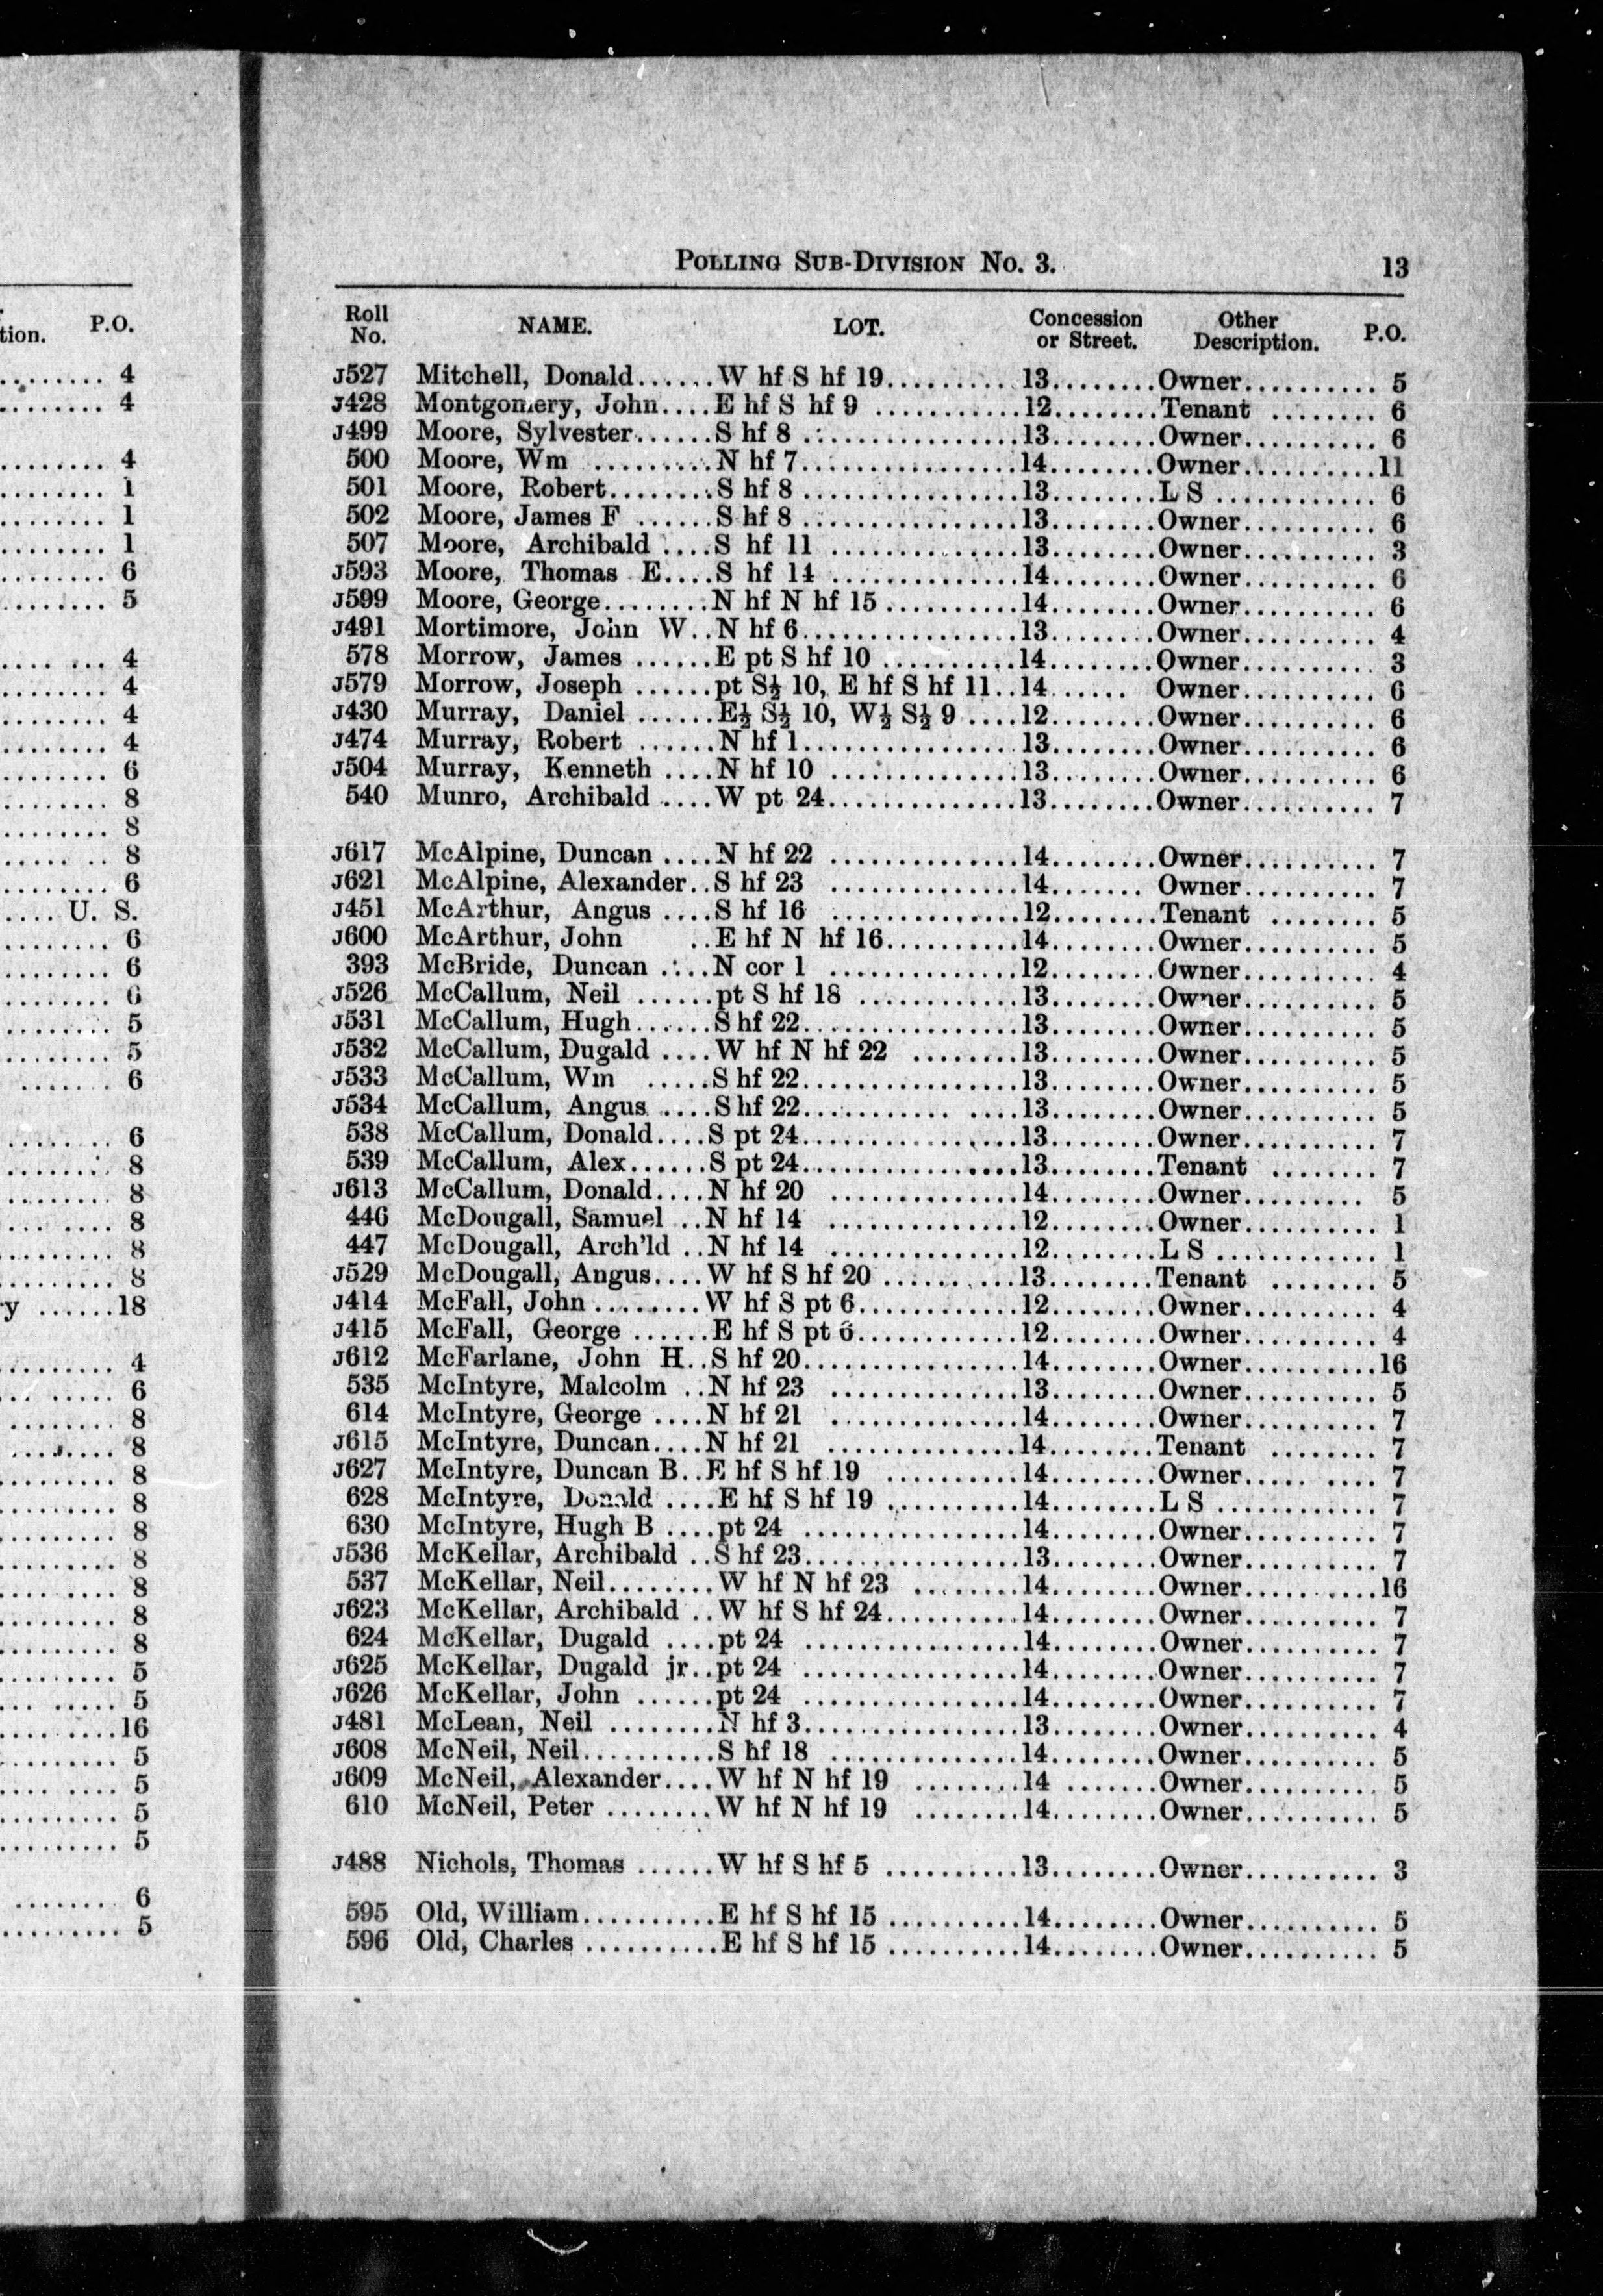 tion. P.O.
........ 4
........ 4
........ 4
........ 1
........ 1
........ 1
........ 6
........ 5
.... ... 4
........ 4
........ 4
........ 4
........ 6
........ 8
........ 8
..... .. 8
........ 6
.... U. S.
........ 6
........ 6
........ 6
........ 5
........ 5
....... 6
........ 6
........ 8
........ 8
... .... 8
........ 8
........ 8
y ......18
........ 4
.. ..... 6
........ 8
........ 8
........ 8
........ 8
........ 8
........ 8
........ 8
........ 8
........ 8
........ 5
... ..... 5
........16
........ 5
........ 5
........ 5
........ 5
........ 6
........ 5
POLLING SUB-DIVISION NO. 3. 13
Roll No. NAME. LOT. Concession or Street. Other Description. P.O.
J527 Mitchell, Donald......W hf S hf 19..........13........Owner.......... 5
J428 Montgomery, John....E hf S hf 9 ...........12........Tenant ........ 6
J499 Moore, Sylvester......S hf 8 ................13........Owner.......... 6
500 Moore, Wm ..........N hf 7................14........Owner..........11
501 Moore, Robert........S hf 8 ................13........L S ............ 6
502 Moore, James F ......S hf 8 ................13........Owner.......... 6
507 Moore, Archibald ....S hf 11 ..............13........Owner.......... 3
J593 Moore, Thomas E....S hf 14 ..............14........Owner.......... 6
J599 Moore, George........N hf N hf 15 ..........14........Owner.......... 6
J491 Mortimore, John W..N hf 6................13........Owner.......... 4
578 Morrow, James ......E pt S hf 10 ..........14........Owner.......... 3
J579 Morrow, Joseph ......pt S½ 10, E hf S hf 11..14...... Owner.......... 6
J430 Murray, Daniel ......E½ S½ 10, W½ S½ 9 ....12........Owner.......... 6
J474 Murray, Robert ......N hf 1................13........Owner.......... 6
J504 Murray, Kenneth ....N hf 10 ..............13........Owner.......... 6
540 Munro, Archibald ....W pt 24..............13........Owner.......... 7
J617 McAlpine, Duncan ....N hf 22 ..............14........Owner.......... 7
J621 McAlpine, Alexander..S hf 23 ..............14....... Owner.......... 7
J451 McArthur, Angus ....S hf 16 ..............12........Tenant ........ 5
J600 McArthur, John ..E hf N hf 16..........14........Owner.......... 5
393 McBride, Duncan ....N cor 1 ..............12........Owner.......... 4
J526 McCallum, Neil ......pt S hf 18 ............13........Owner.......... 5
J531 McCallum, Hugh......S hf 22................13........Owner.......... 5
J532 McCallum, Dugald ....W hf N hf 22 ........13........Owner.......... 5
J533 McCallum, Wm .....S hf 22................13........Owner.......... 5
J534 McCallum, Angus ....S hf 22........... ....13........Owner.......... 5
538 McCallum, Donald....S pt 24................13........Owner.......... 7
539 McCallum, Alex......S pt 24................13........Tenant ........ 7
J613 McCallum, Donald....N hf 20 ..............14........Owner.......... 5
446 McDougall, Samuel ..N hf 14 ..............12........Owner.......... 1
447 McDougall, Arch'ld ..N hf 14 ..............12........L S ............ 1
J529 McDougall, Angus....W hf S hf 20 ..........13........Tenant ........ 5
J414 McFall, John ........W hf S pt 6............12........Owner.......... 4
J415 McFall, George ......E hf S pt 6............12........Owner.......... 4
J612 McFarlane, John H..S hf 20................14........Owner..........16
535 McIntyre, Malcolm ..N hf 23 ..............13........Owner.......... 5
614 McIntyre, George ....N hf 21 ..............14........Owner.......... 7
J615 McIntyre, Duncan....N hf 21 ..............14........Tenant ........ 7
J627 McIntyre, Duncan B..E hf S hf 19 ..........14........Owner..... .... 7
628 McIntyre, Donald ....E hf S hf 19 ..........14........L S ............ 7
630 McIntyre, Hugh B ....pt 24 ................14........Owner.......... 7
J536 McKellar, Archibald ..S hf 23................13........Owner.......... 7
537 McKellar, Neil........W hf N hf 23 ........14........Owner..........16
J623 McKellar, Archibald ..W hf S hf 24..........14........Owner.......... 7
624 McKellar, Dugald ....pt 24 ................14........Owner.......... 7
J625 McKellar, Dugald jr..pt 24 ................14........Owner.......... 7
J626 McKellar, John ......pt 24 ................14........Owner.......... 7
J481 McLean, Neil ........N hf 3................13........Owner.......... 4
J608 McNeil, Neil..........S hf 18 ..............14........Owner.......... 5
J609 McNeil, Alexander....W hf N hf 19 ........14 .......Owner.......... 5
610 McNeil, Peter ........W hf N hf 19 ........14........Owner.......... 5
J488 Nichols, Thomas ......W hf S hf 5 ..........13........Owner.......... 3
595 Old, William..........E hf S hf 15 ..........14........Owner.......... 5
596 Old, Charles ..........E hf S hf 15 ..........14........Owner.......... 5